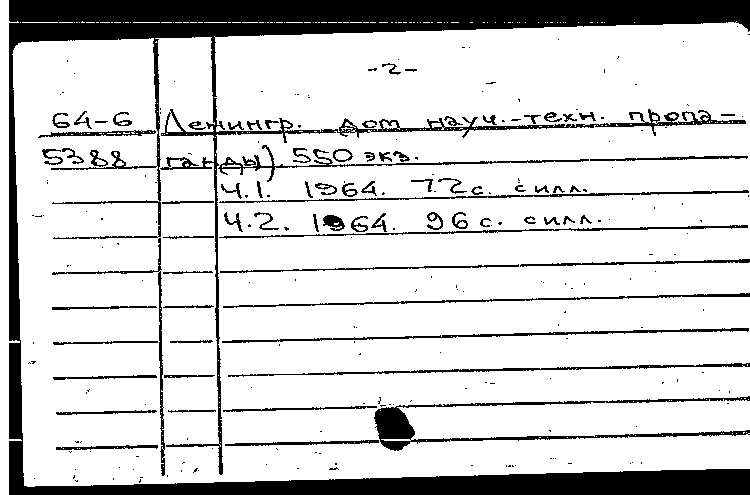 -2-
64-6 Ленингр. дом науч.-техн. пропа-
5388 ганды). 550 экз.
Ч.1. 1964. 72 с. с илл.
Ч.2. 1964. 96 с. с илл.